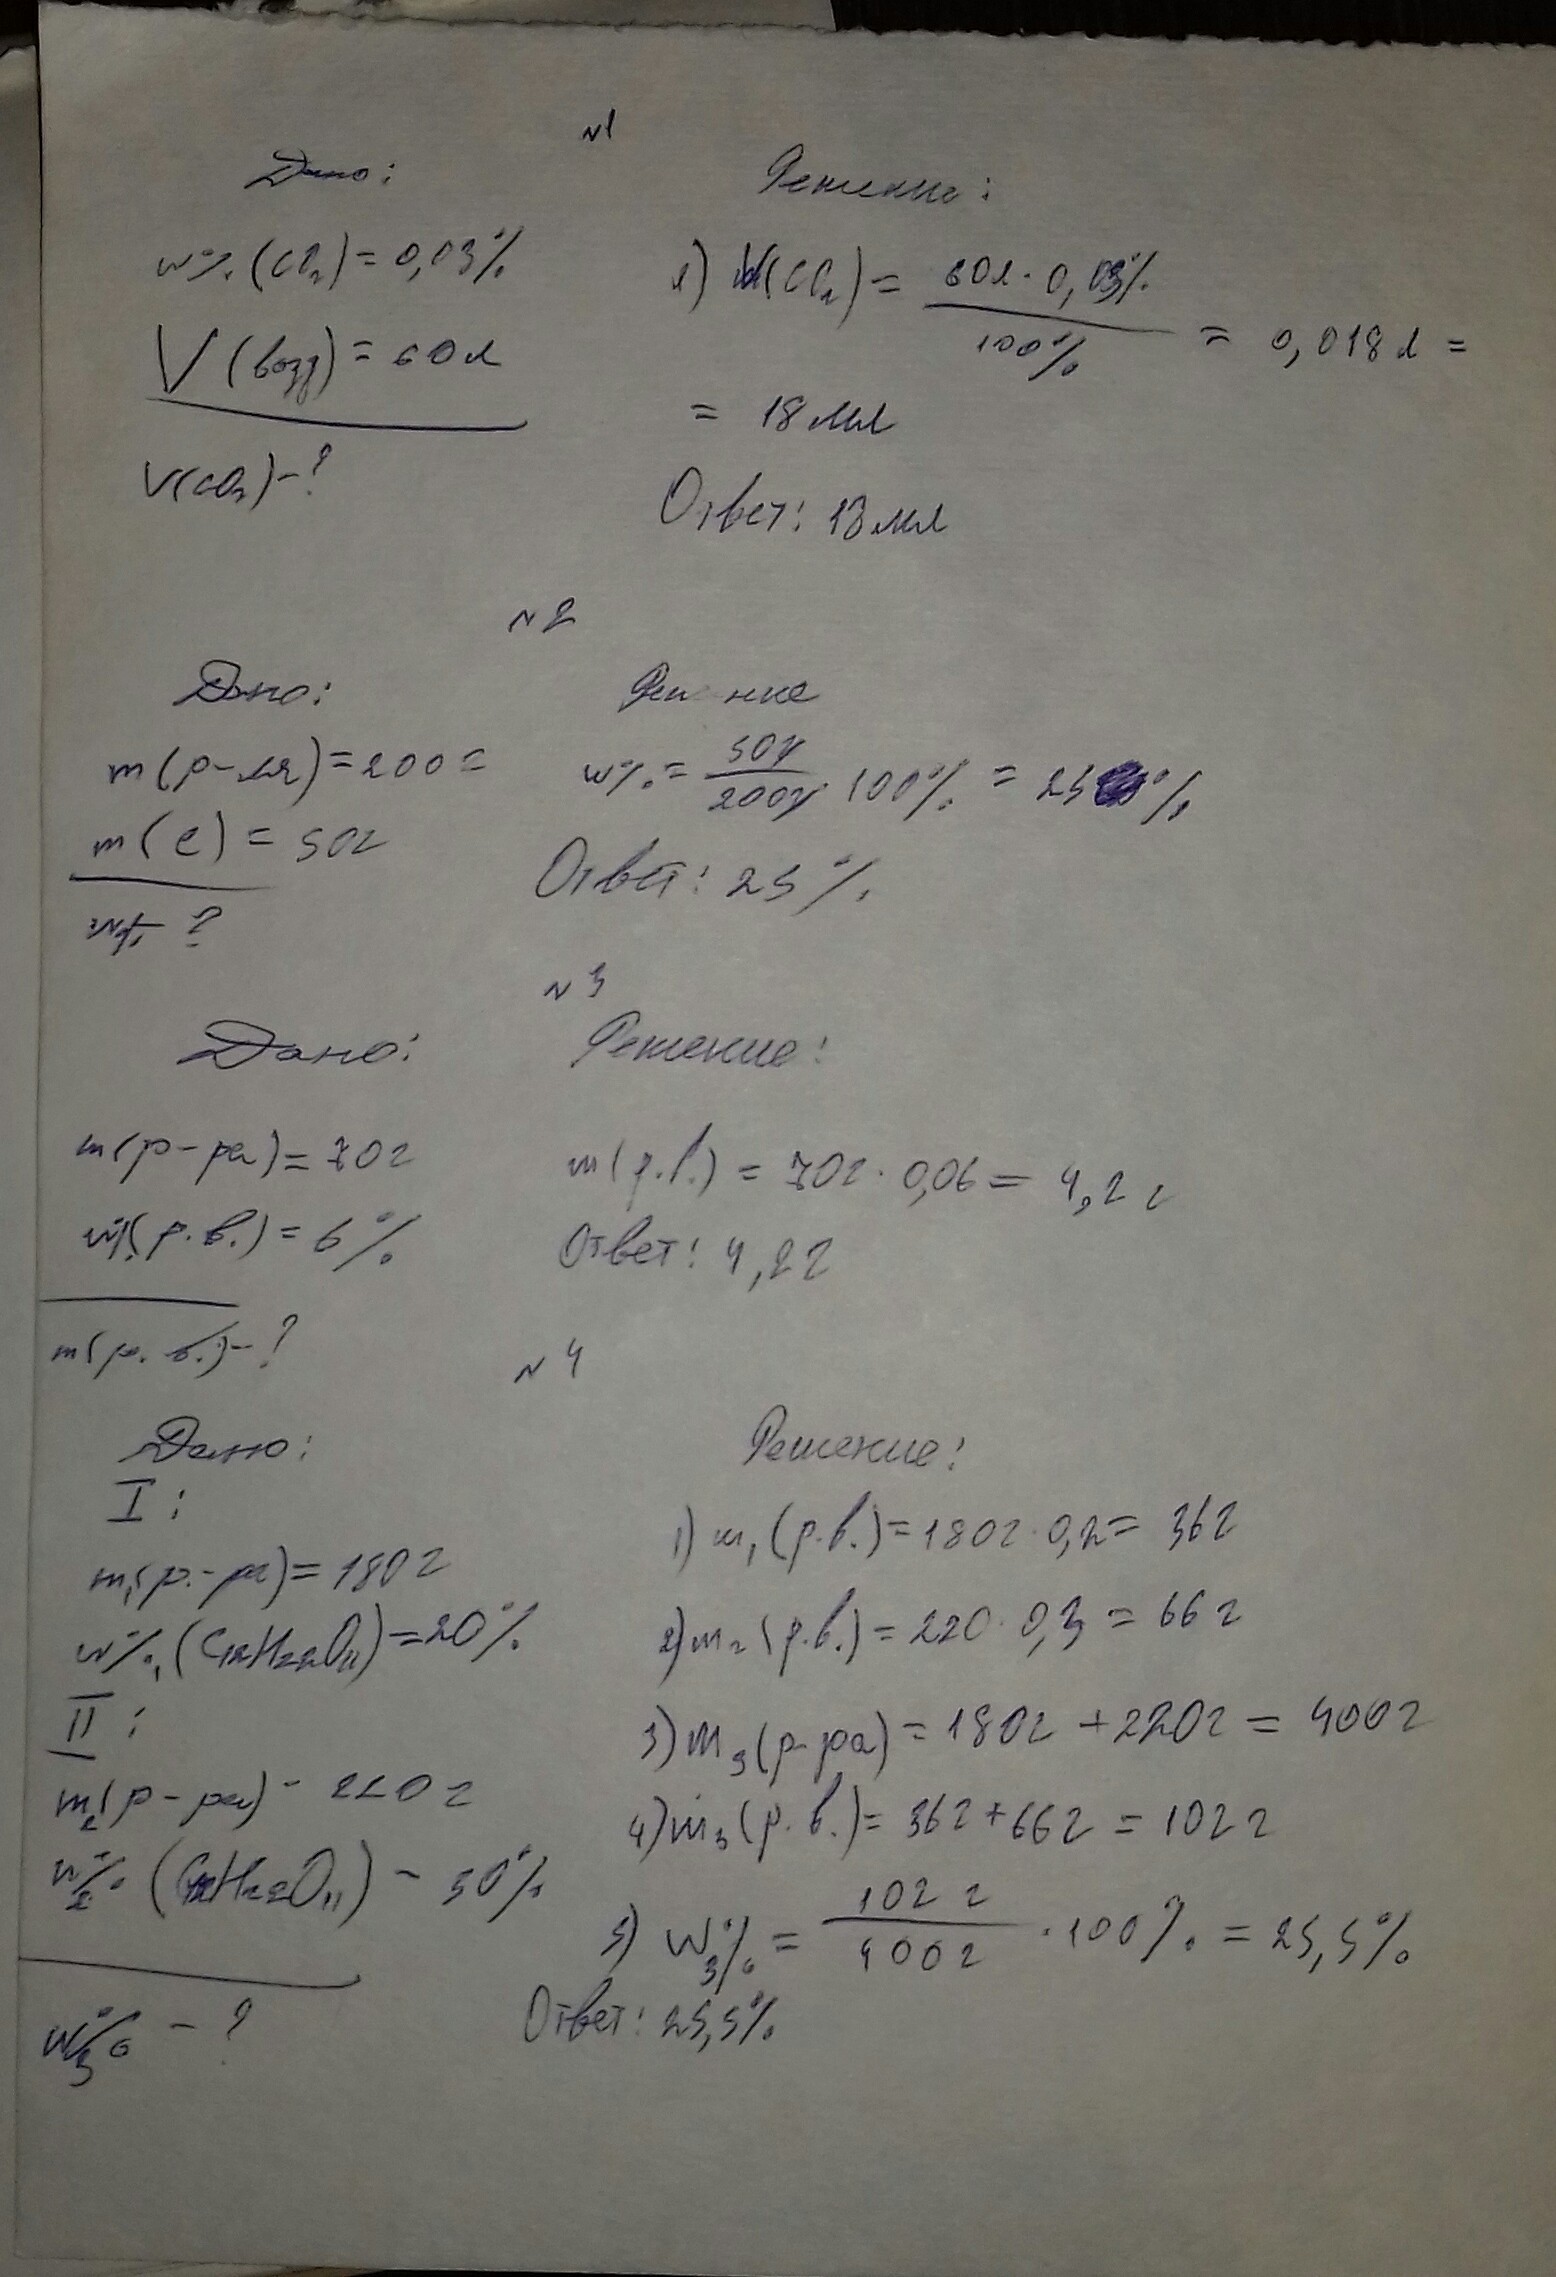 №1
Дано:
w%(CO₂)=0,03%
V(возд)=60л
V(CO₂)-?
Решение:
1) V(CO₂)= 60л·0,03%/100% = 0,018л =
= 18мл
Ответ: 18мл
№2
Дано:
m(р-ля)=200г
m(c)=50г
w% ?
Решение
w%= 50г/200г·100% = 25%
Ответ: 25%
№3
Дано:
m(р-ра)=70г
w%(р.в.)=6%
m(р.в.)-?
Решение:
m(р.в.)=70г·0,06=4,2г
Ответ: 4,2г
№4
Дано:
I:
m₁(р.-ра)=180г
w%₁(C₁₂H₂₂O₁₁)=20%
II:
m₂(р-ра)-220г
w%₂(C₁₂H₂₂O₁₁)-30%
w₃%-?
Решение:
1) m₁(р.в.)=180г·0,2=36г
2) m₂(р.в.)=220·0,3=66г
3) m₃(р-ра)=180г+220г=400г
4) m₃(р.в.)=36г+66г=102г
5) w₃%= 102г/400г·100%=25,5%
Ответ: 25,5%